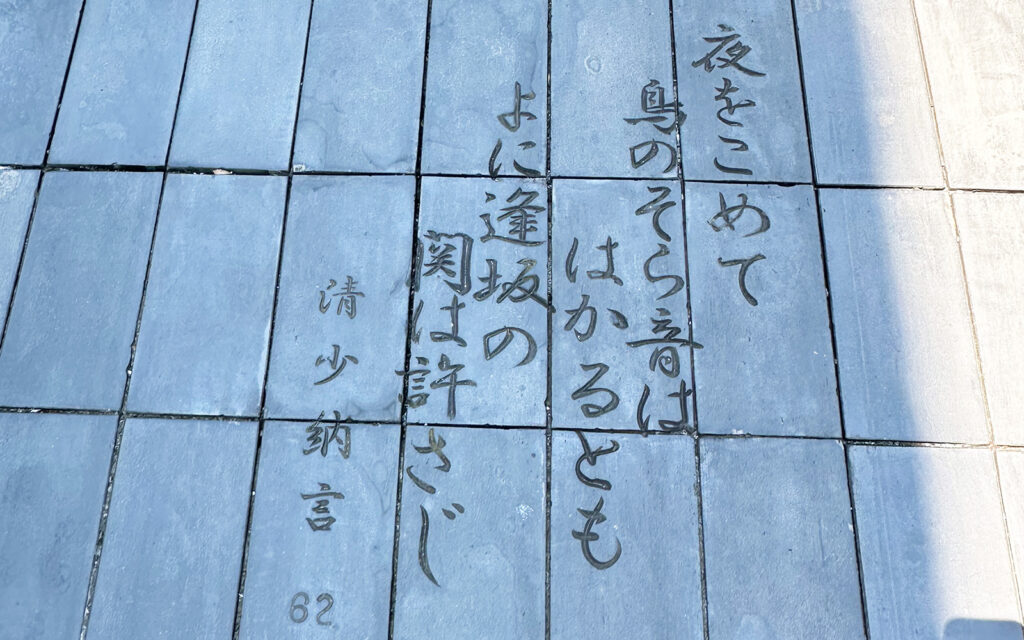 夜をこめて
鳥のそら音は
はかるとも
よに逢坂の
関は許さじ
清少納言
62